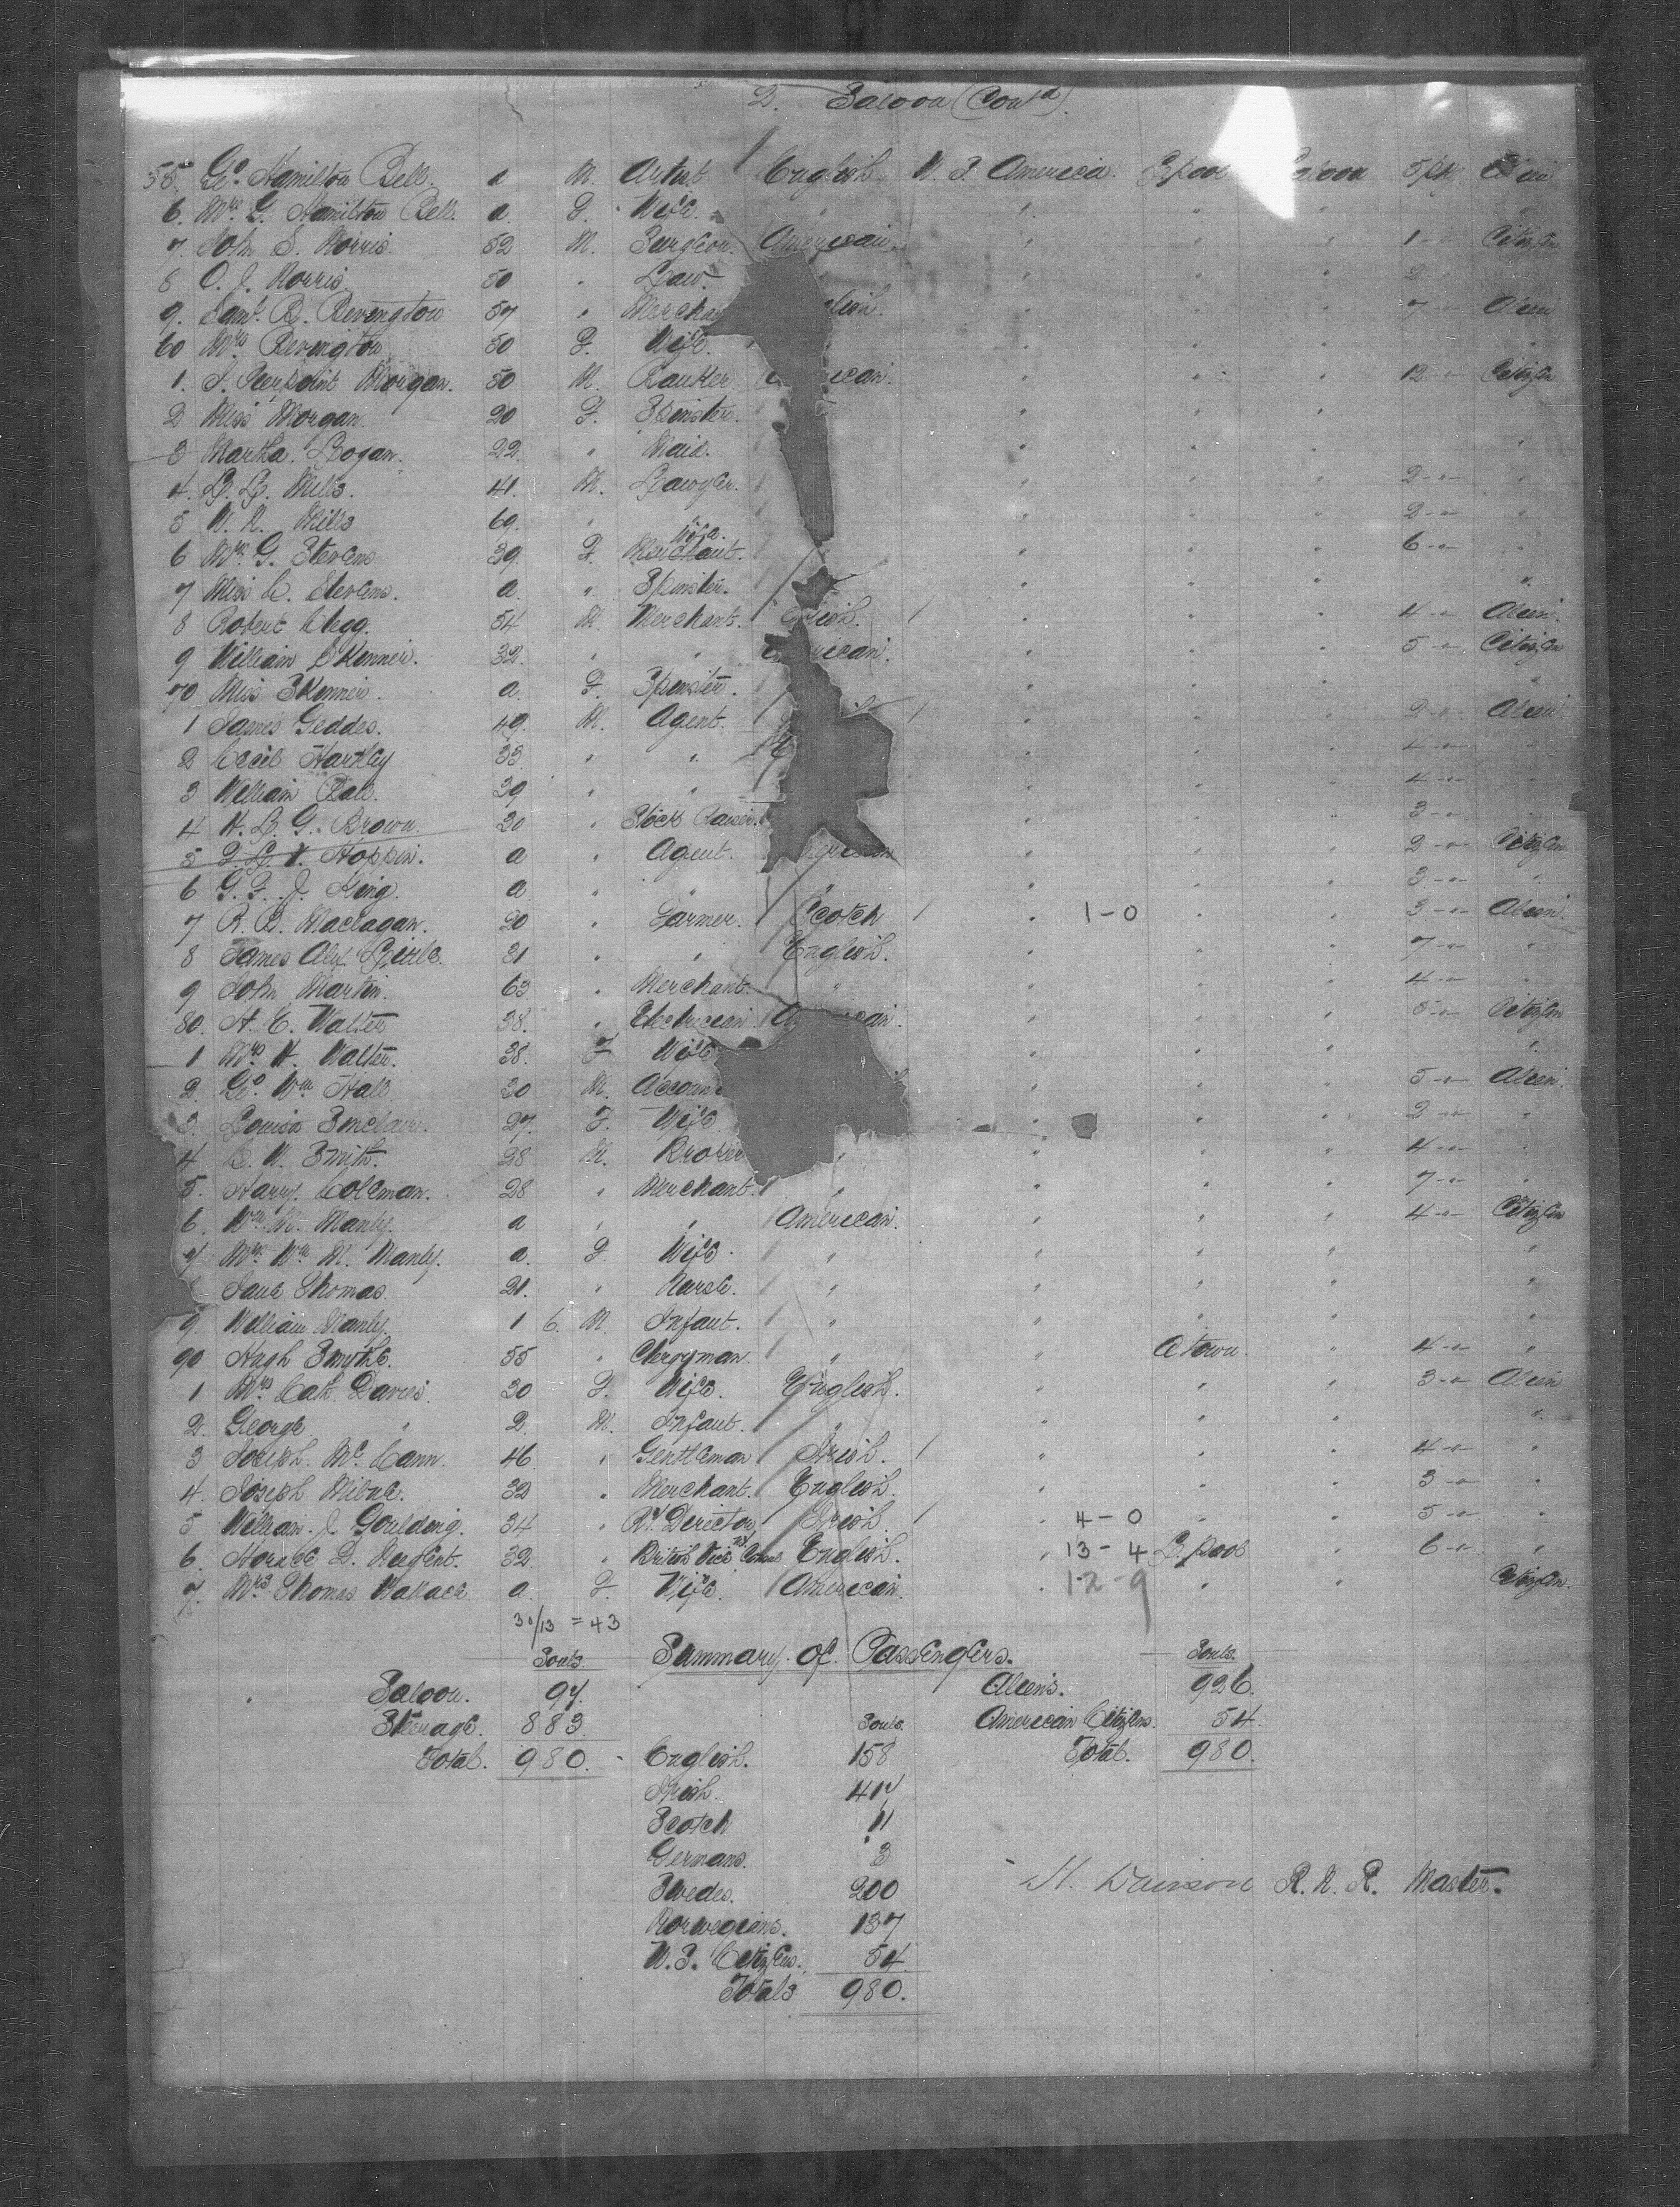 2. Saloon (Cont'd).
55. Geo. Hamilton Bell. a M. Artist English. U. S. America. L'pool Saloon 5 pkg Alien
6. Mrs. G. Hamilton Bell. a. F. Wife. " " " " "
7. John S. Norris. 52 M. Surgeon. American. " " " 1 - " - Citizen
8 O. J. Norris 50 " Law. " " " " 2 "
9. Saml. B. Bevington 57 " Mercha lish. " " " 7 - " - Alien
60 Mrs. Bevington 50 F. Wife. " " " "
1. J. Pierpoint Morgan. 50 M. Banker ican. " " " 12 - " - Citizen
2 Miss Morgan 20 F. Spinster. " " "
3 Martha Logan. 22. " Maid. " " " "
4. L. L. Mills. 41. M. Lawyer. " " " 2 - " - "
5 W. R. Mills 69. " " " " " 2 - " - "
6 Mrs. G. Stevens 39. F. Merchant. Wife. " " " 6 - " - "
7 Miss C. Stevens. a. " Spinster. " " " "
8 Robert Clegg. 54 M. Merchant. ish. " " " 4 - " - Alien.
9 William Skinner. 32. " " rican. " " " 5 - " - Citizen
70 Miss Skinner. a. F. Spinster. " " " "
1 James Geddes. 49. M. Agent. " " " 2 - " - Alien
2 Cecil Hartley 33 " " " " " 4 - " - "
3 William Ball. 39 " " " " " 4 - " - "
4 H. L. G. Brown. 20 " Stock Raiser. " " " 3 - " - "
5 F. L. V. Hoppin. a " Agent. merican " " " 2 - " - Citizen
6 G. F. J. King. a " " " " " " 3 - " - "
7 R. B. Maclagan. 20 " Farmer. Scotch " 1 - 0 " " 3 - " - Alien
8 James Alex. Little. 21 " " English. " " " 7 - " - "
9 John Martin. 63 " Merchant. " " " " 4 - " - "
80. H. C. Walter 38. " Electrician. A can. " " " 5 - " - Citizen
1 Mrs. H. Walter. 38. F Wife " " " "
2. Geo. Wm. Hall 20 M. Accoun " " " 5 - " - Alien.
3. Louisa Sinclair. 27. F. Wife " " " 2 - " - "
4. C. W. Smith. 28 M. Broker " " " " 4 - " - "
5. Harry. Coleman. 28 " Merchant. " " " " 7 - " - "
6. Wm. M. Manly. a " " American. " " " 4 - " - Citizen
7 Mrs. Wm. M. Manly. a. F Wife. " " " " "
Jane Thomas. 21. " Nurse. " " " " "
9. William Manly. 1 6. M. Infant. " " " " "
90 Hugh Smythe. 55 " Clergyman " " Q'town. " 4 - " - "
1 Mrs. Cath. Davies. 30 F. Wife. English. " " " 3 - " - Alien
2. George " 2. M. Infant. " " " " "
3 Joseph. McCann. 46 " Gentleman Irish. " " " 4 - " - "
4. Joseph Milne. 32 " Merchant. English. " " " 3 - " - "
5 William. J. Goulding. 34 " Ry. Director Irish. " 4 - 0 " " 5 - " - "
6. Horace D. Nugent. 32 " British Vice Consul English. " 13 - 4 L'pool " 6 - " "
7. Mrs. Thomas Wallace a. F. Wife. American. " 12 - 9 " " Citizen.
30/13 = 43
Souls. Summary. of. Passengers. Souls.
Saloon. 97. Aliens. 926.
Steerage. 883. Souls. American Citizens. 54.
Total. 980. English. 158 Total. 980.
Irish. 417
Scotch 11
Germans. 3
Swedes. 200
Norwegians. 137
U. S. Citizens. 54.
Totals 980.
R. N. R. Master.